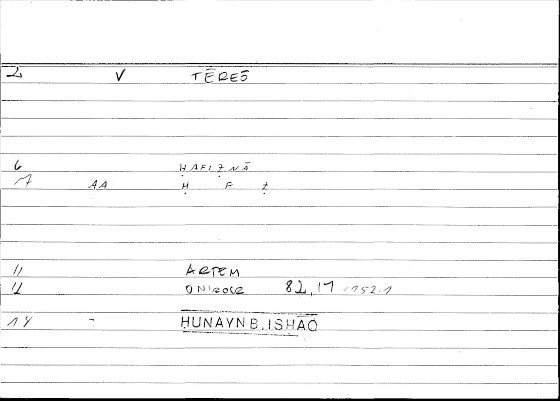 2 V TĒREŌ
6 ḤAFIẒNĀ
7 AA Ḥ F Ẓ
11 ARTEM
12 ONIROCR 82,17 152.1
14 - ḤUNAYN B. ISḤĀQ